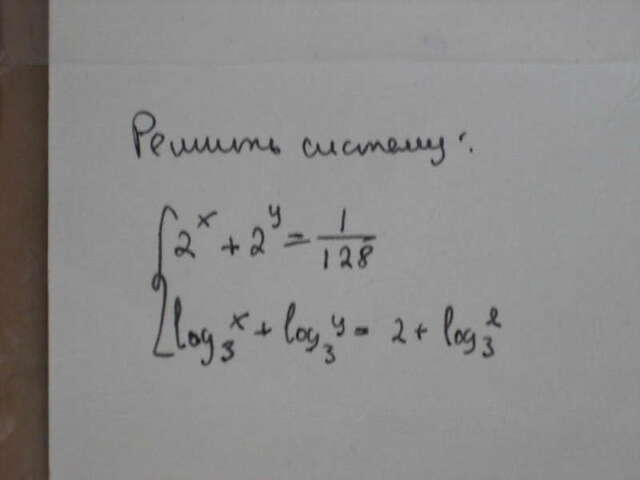 Решить систему:
2^x + 2^y = 1/128
log_3 x + log_3 y = 2 + log_3 2